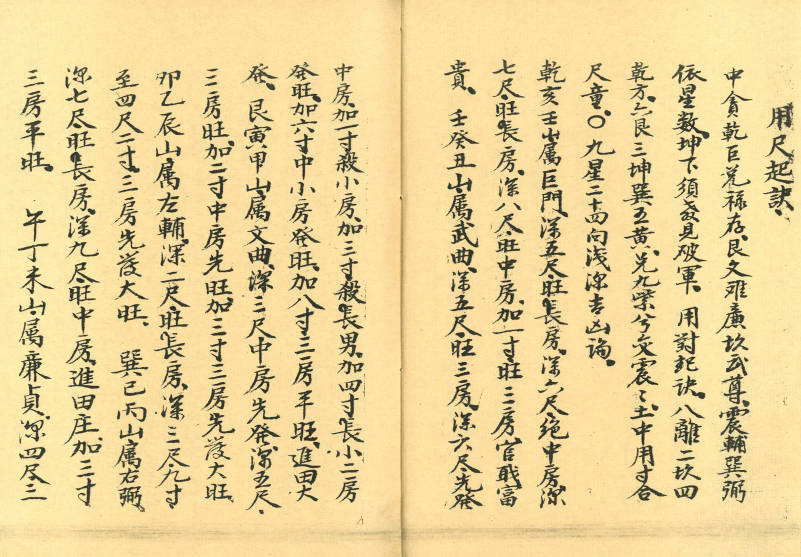 用尺起訣
中貪乾巨兌祿存艮文难廉坎武尊震輔巽弼
依星數坤下須教見破軍 用對起訣八離二坎四
乾方六艮三坤巽五黃兌九紫兮交震三土中用寸合
尺童〇九星二十四向浅深吉凶論
乾亥壬山属巨門深五尺旺長房深六尺绝中房深
七尺旺長房深八尺旺中房加一寸旺三房官職富
貴 壬癸丑山属武曲深五尺旺三房深六尺先發
中房加一寸殺小房加三寸殺長男加四寸長小二房
發旺加六寸中小房發旺加八寸三房平旺進田大
發 艮寅甲山属文曲深三尺中房先發深五尺
三房旺加二寸中房先旺加三寸三房先發大旺
卯乙辰山属左輔深二尺旺長房深三尺九寸
至四尺二寸三房先發大旺 巽巳丙山属右弼
深七尺旺長房深九尺旺中房進田庄加三寸
三房平旺 午丁未山属廉貞深四尺三